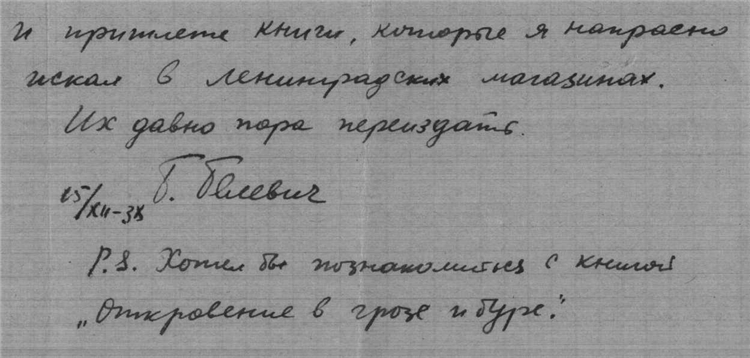 и пришлете книги, которые я напрасно
искал в Ленинградских магазинах.
Их давно пора переиздать.
15/XII-38
P.S. Хотел бы познакомиться с книгой
„Откровение в грозе и буре".